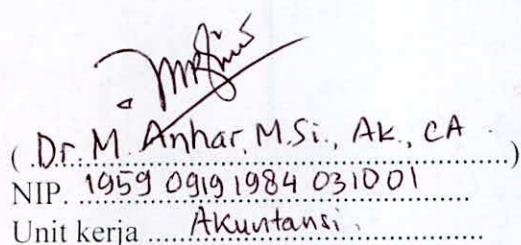 ( Dr. M. Anhar, M.Si., Ak., CA. )
NIP. 1959 0919 1984 031001
Unit kerja Akuntansi.